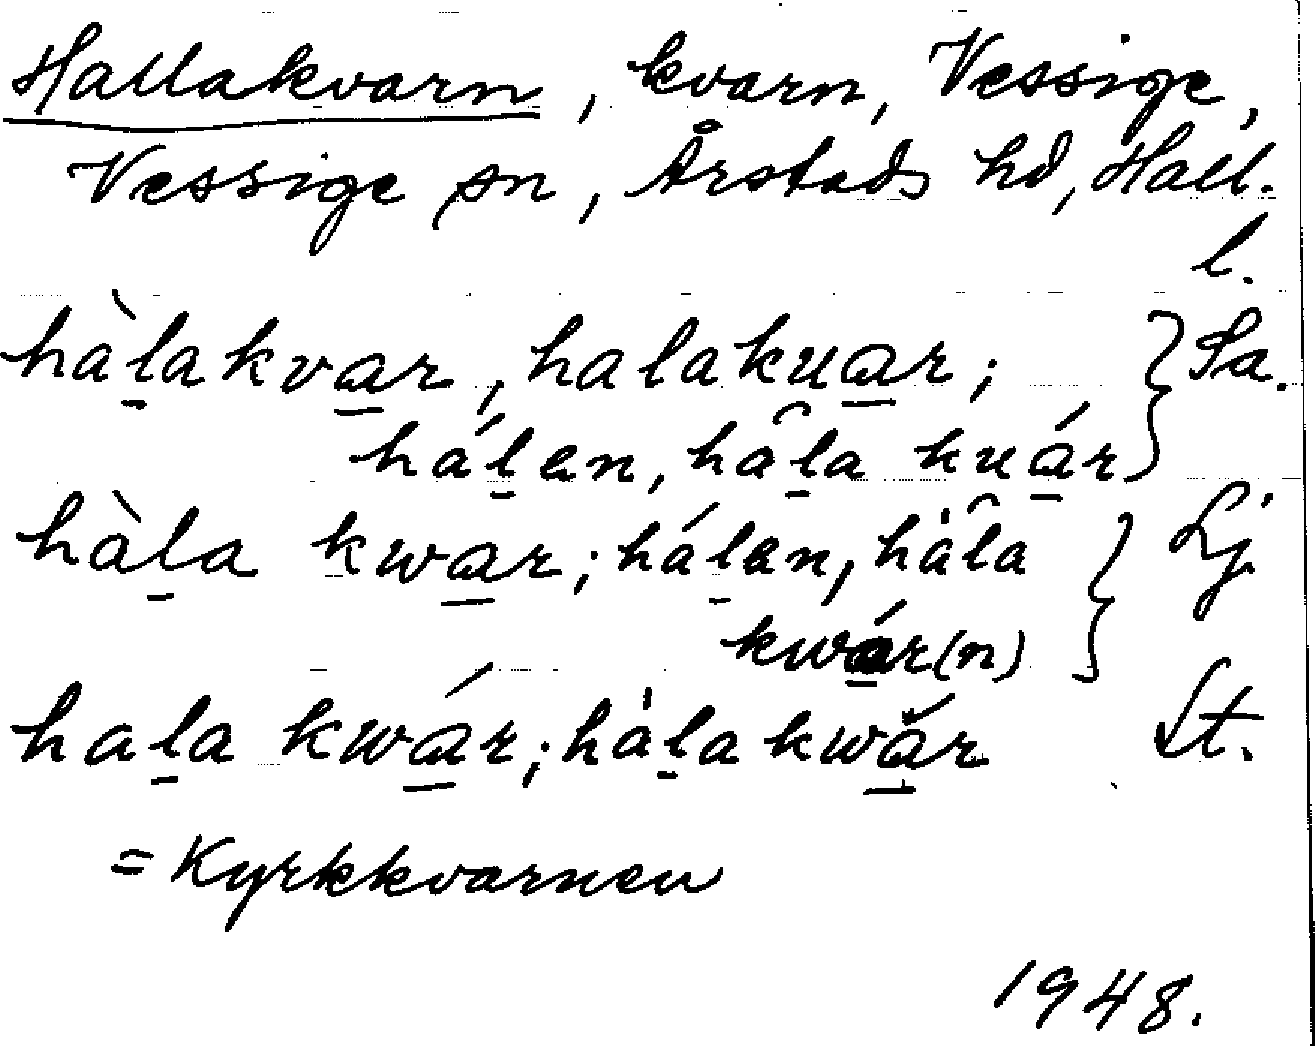 Hallakvarn, kvarn, Vessige,
Vessige sn, Årstads hd, Hall.
l.
hàl̲akva̲r, halakua̲r; } Sa.
hál̲en, hâl̲a kuá̲r
hàl̲a kwa̲r; hál̲en, hàla } Lj.
kwá̲r(n)
hal̲a kwá̲r; hàl̲a kwa̲r St.
= Kyrkkvarnen
1948.